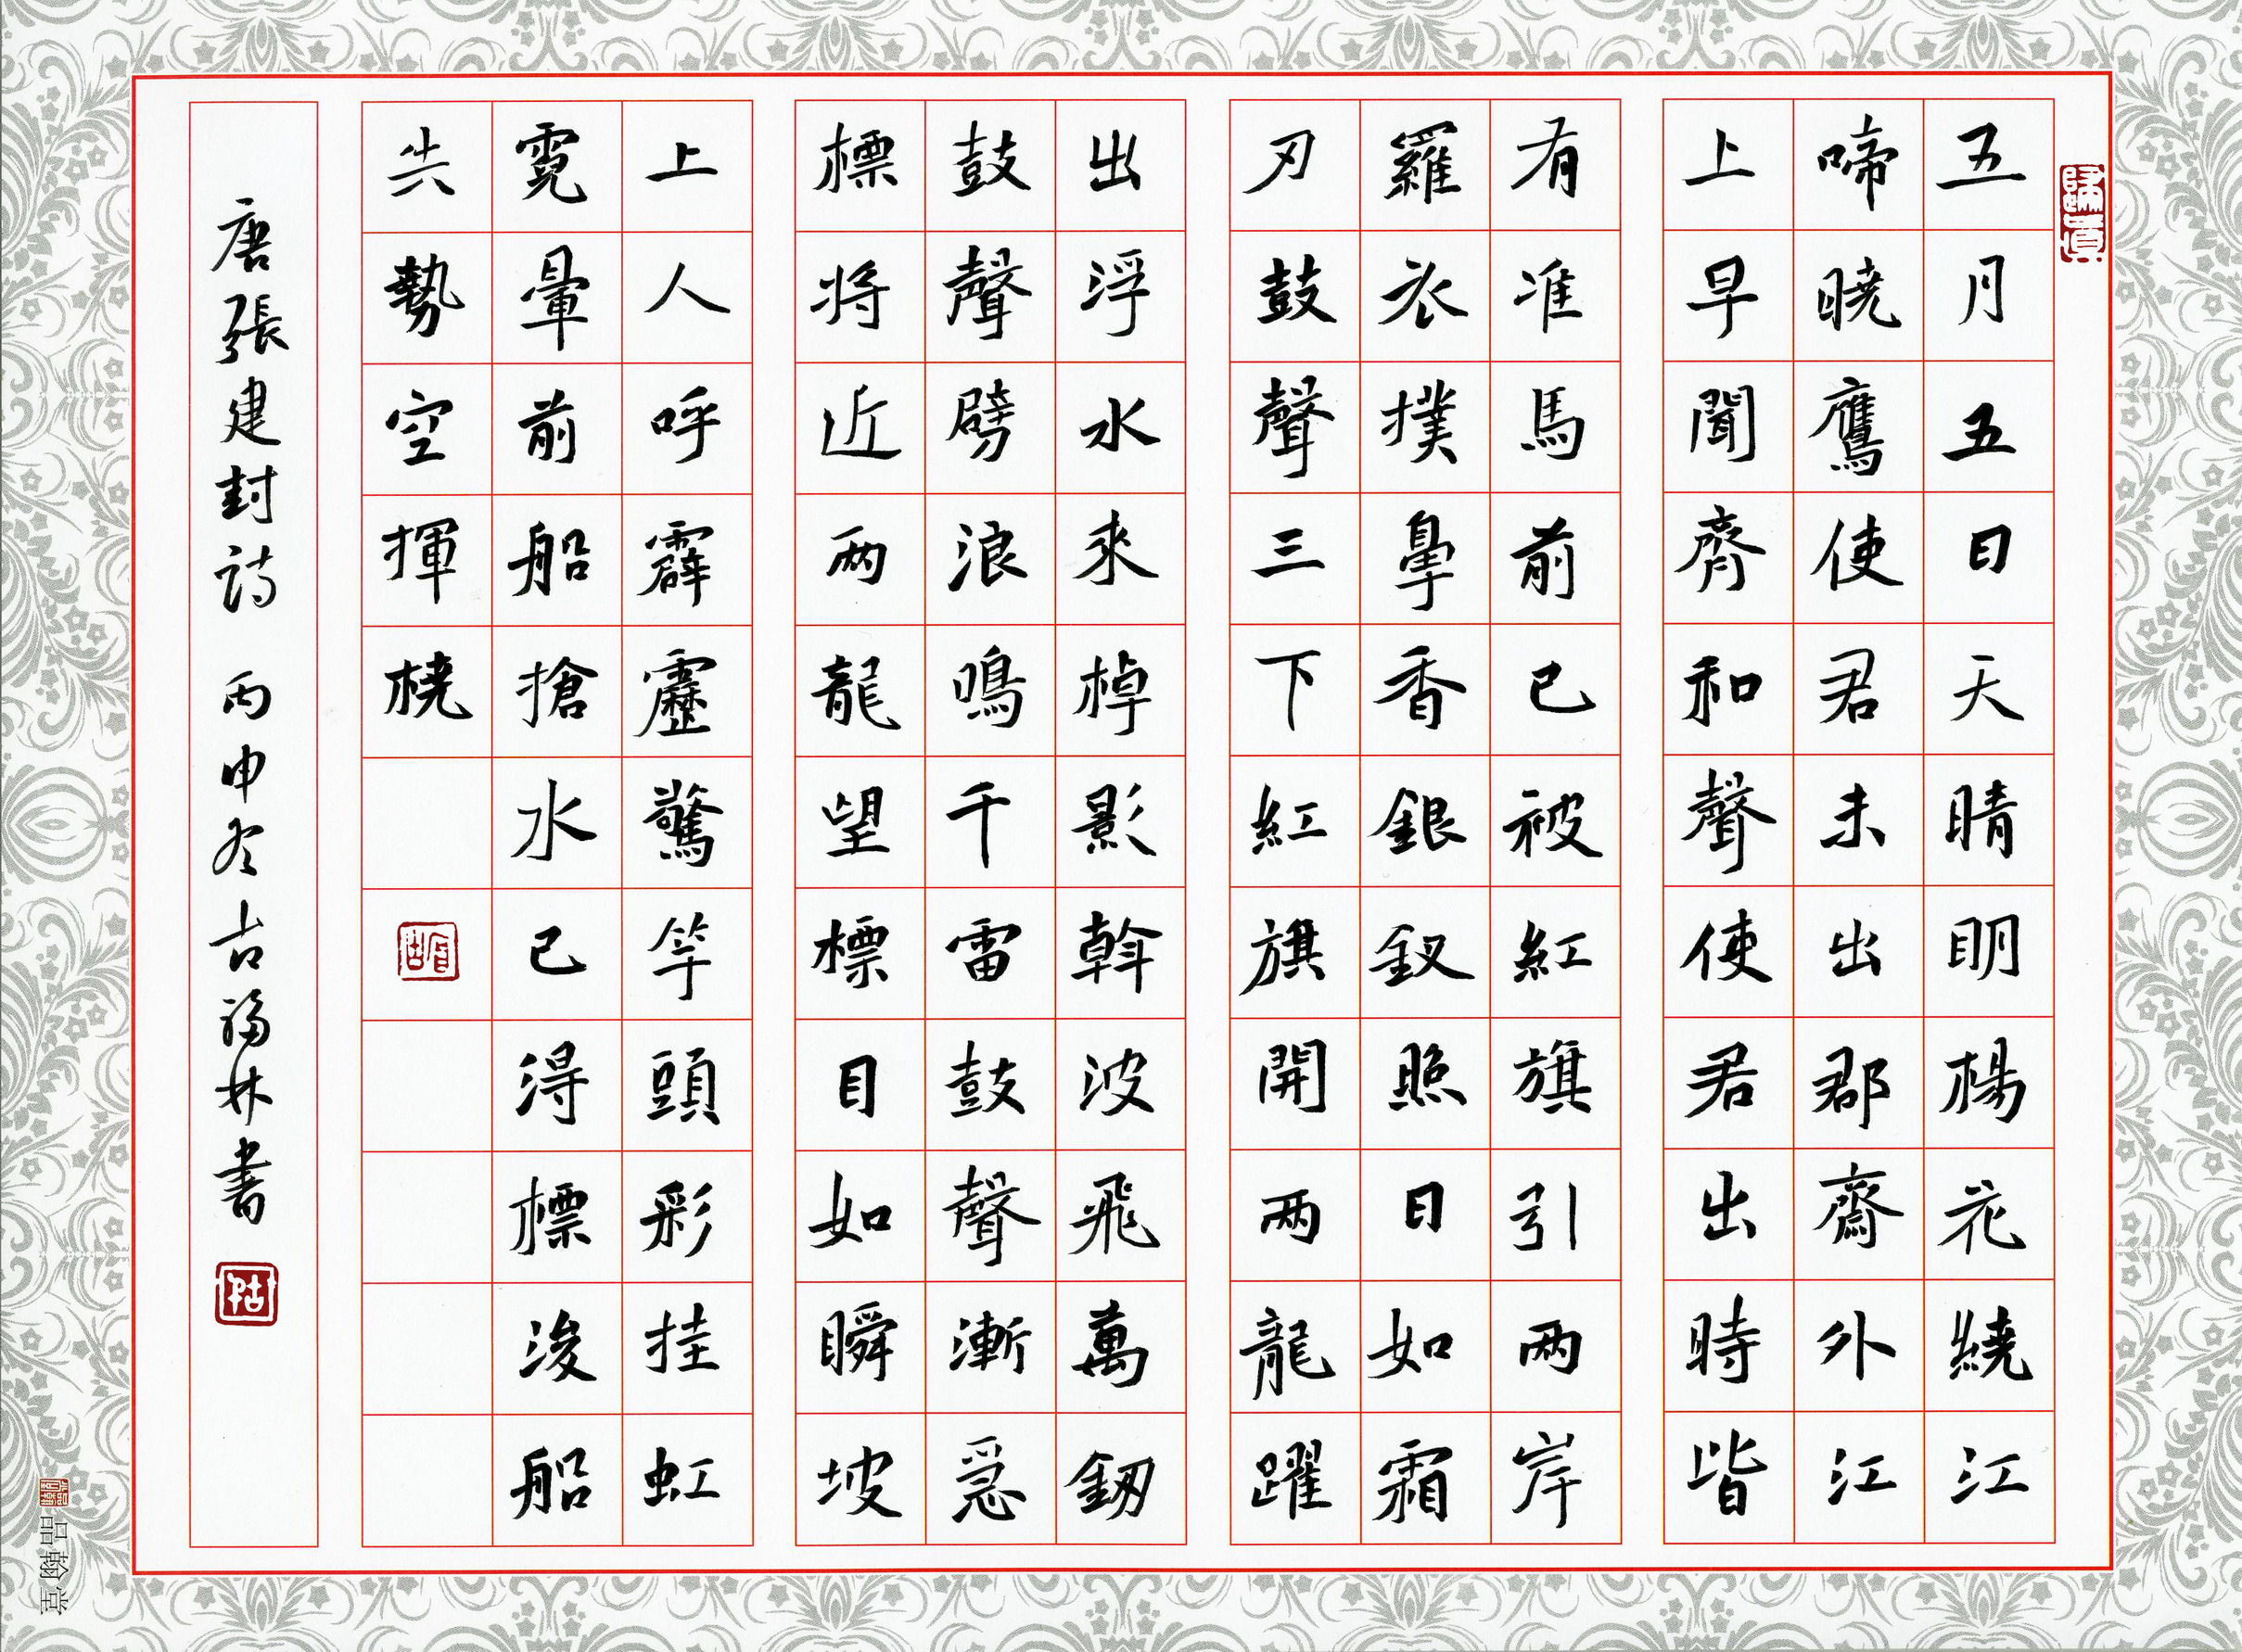 五月五日天晴明楊花繞江
啼曉鷹使君未出郡齋外江
上早聞齊和聲使君出時皆
有准馬前已被紅旗引两岸
羅衣撲鼻香銀釵照日如霜
刃鼓聲三下紅旗開两龍躍
出浮水來棹影斡波飛萬釼
鼓聲劈浪鳴千雷鼓聲漸急
標将近两龍望標目如瞬坡
上人呼霹靂驚竿頭彩挂虹
霓暈前船搶水已得標後船
失勢空揮橈
唐張建封詩 丙申冬古福林書
品翰堂